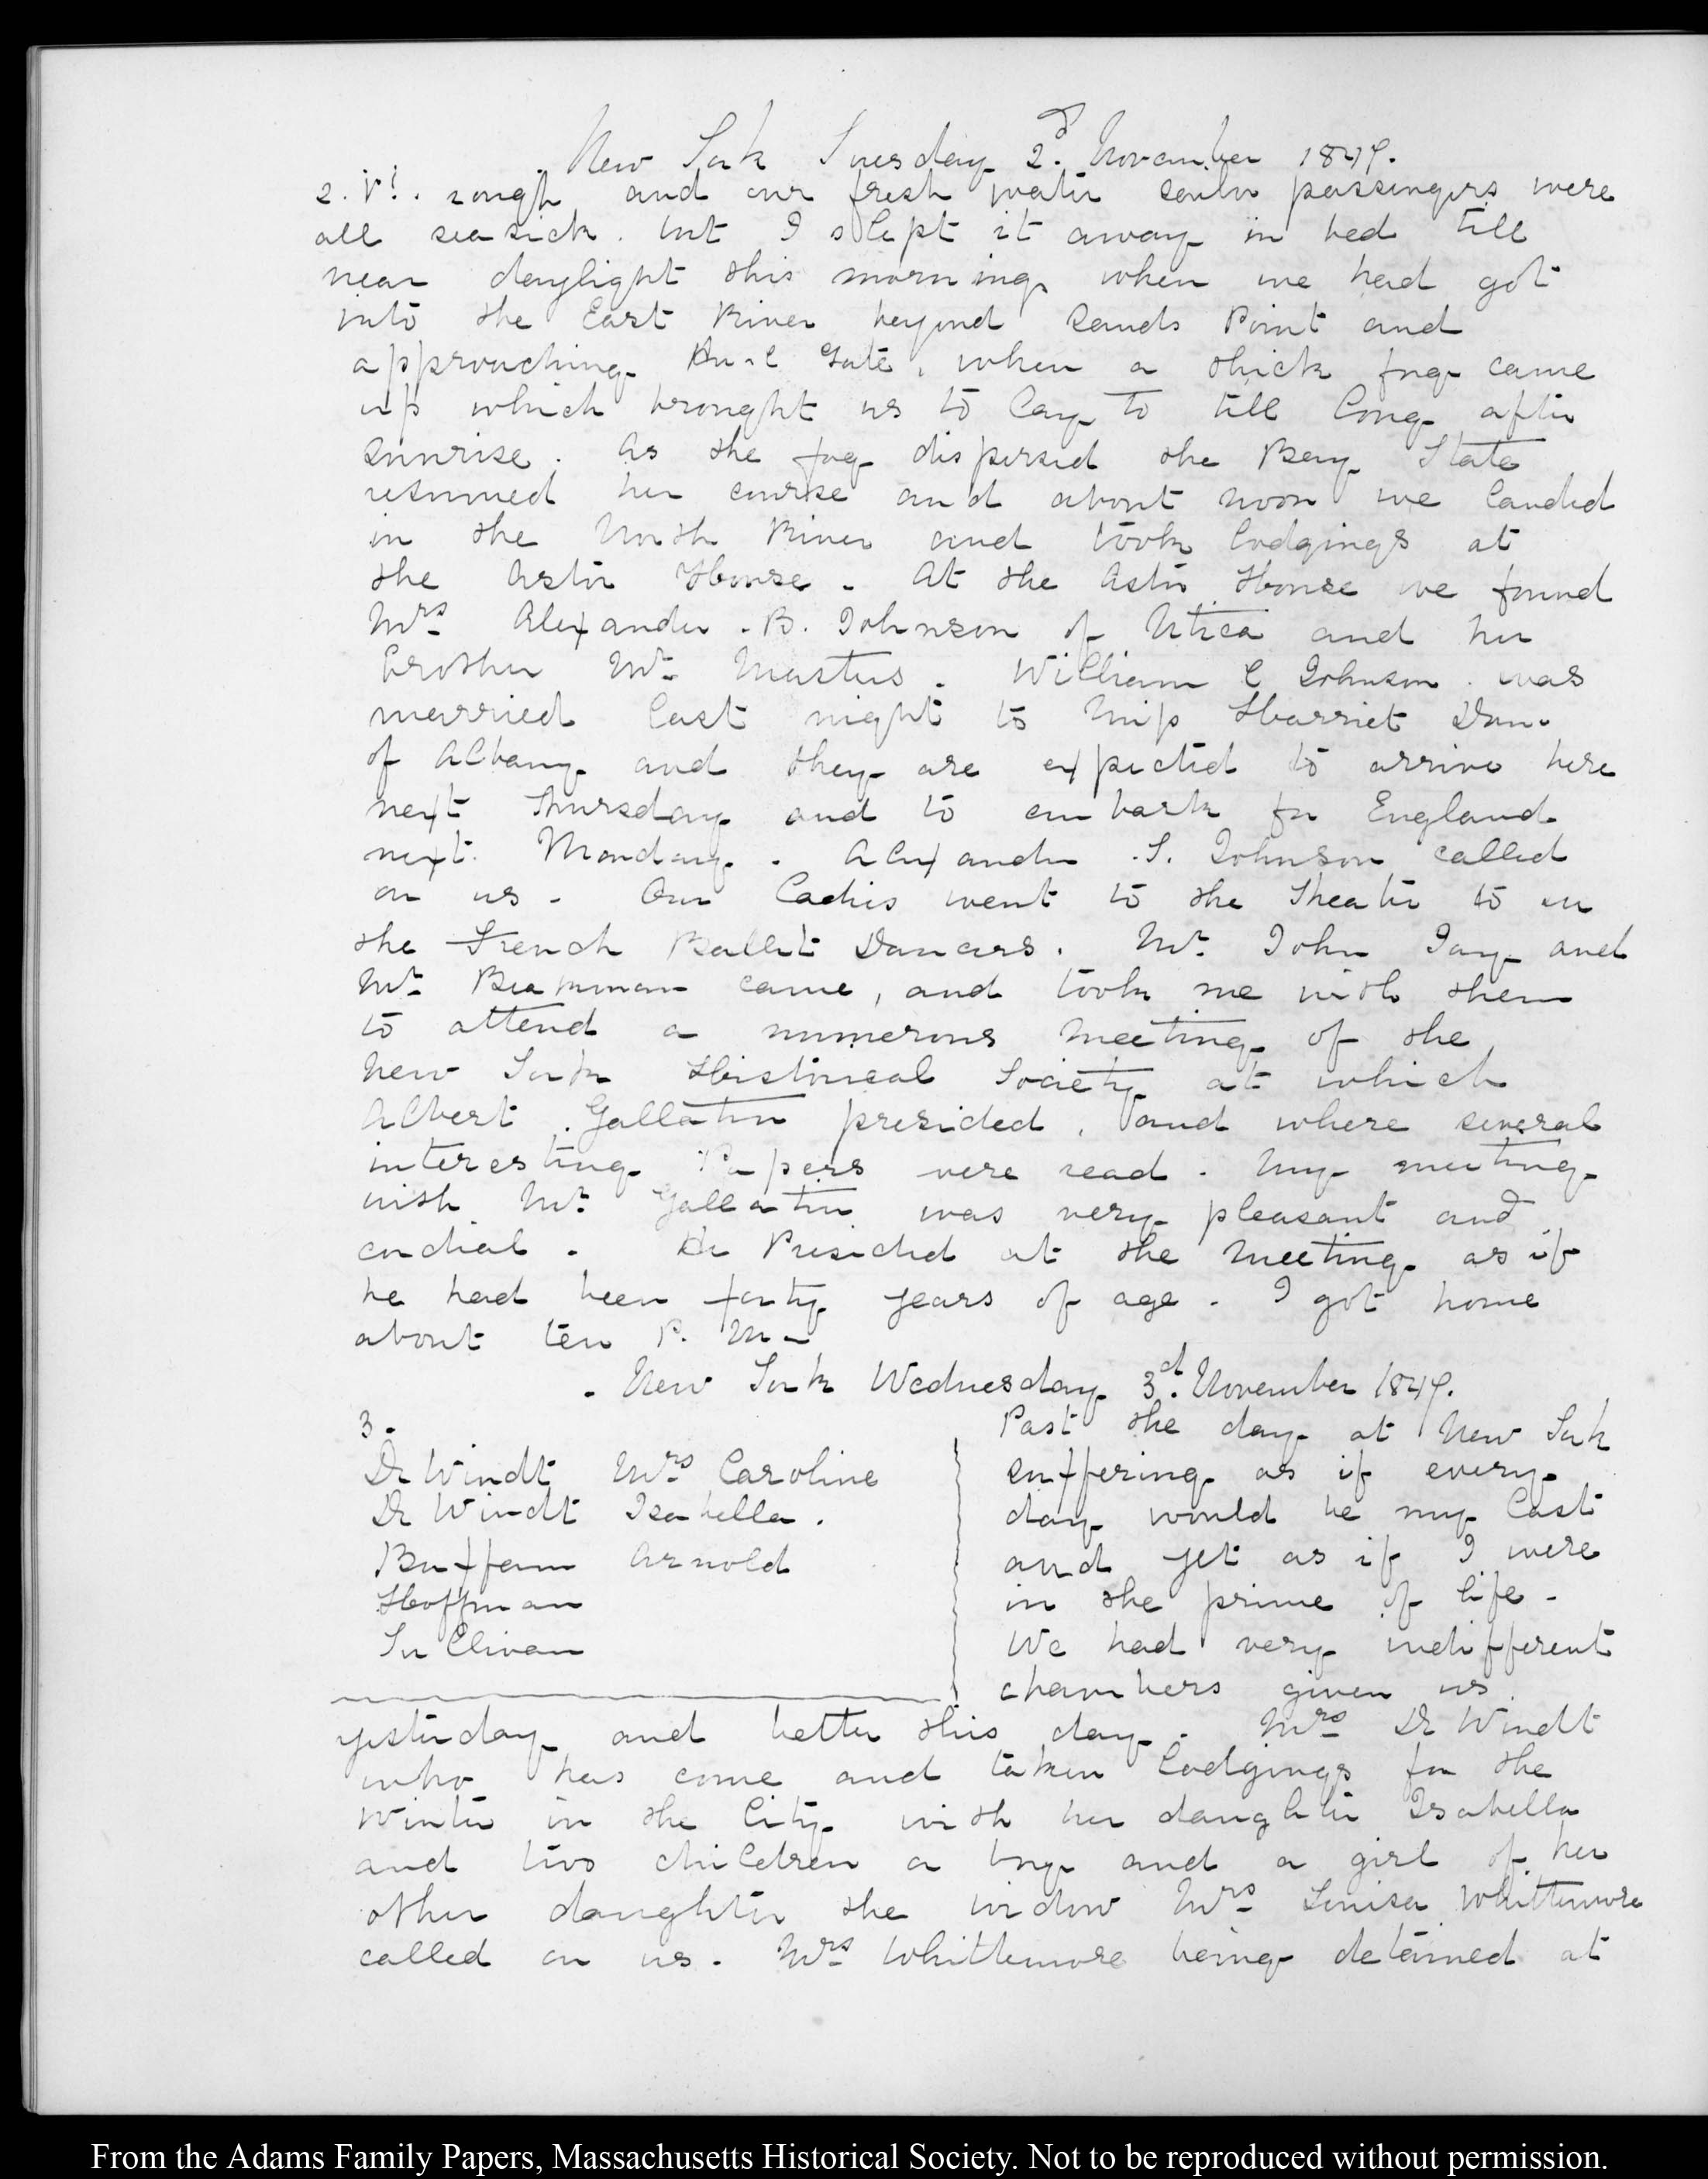 New York Tuesday 2.d November 1847.
2. VI. rough and our fresh water passengers were
all seasick. but I slept it away in bed till
near daylight this morning when we had got
into the East River beyond Sands Point and
approaching Gate, when a thick fog came
up which brought us to lay to till long after
sunrise. As the fog dispersed the Bay State
resumed her course and about noon we landed
in the North River and took lodgings at
the Astor House. At the Astor House we found
Mrs Alexander. B. Johnson of Utica and her
brother Mr Masters. William C Johnson was
married last night to Miss Harriet
of Albany and they are expected to arrive here
next Thursday and to embark for England
next Monday. Alexander. S. Johnson called
on us. Our Ladies went to the Theatre to see
the French Ballet Dancers. Mr John Jay and
Mr Beekman came, and took me with them
to attend a numerous meeting of the
New York Historical Society at which
Albert Gallatin presided, and where several
interesting Papers were read. My meeting
with Mr Gallatin was very pleasant and
cordial. He Presided at the meeting as if
he had been forty years of age. I got home
about ten P. M.
New York Wednesday 3.d November 1847.
3.
De Windt Mrs Caroline
De Windt Isabella.
Buffum Arnold
Hoffman
Sullivan
Past the day at New York
suffering as if every
day would be my last
and yet as if I were
in the prime of life.
We had very indifferent
chambers given us
yesterday and better this day. Mrs De Windt
who has come and taken lodgings for the
Winter in the City with her daughter Isabella
and two children a boy and a girl of her
other daughter the widow Mrs Louisa Whittemore
called on us. Mrs Whittemore being detained at
From the Adams Family Papers, Massachusetts Historical Society. Not to be reproduced without permission.